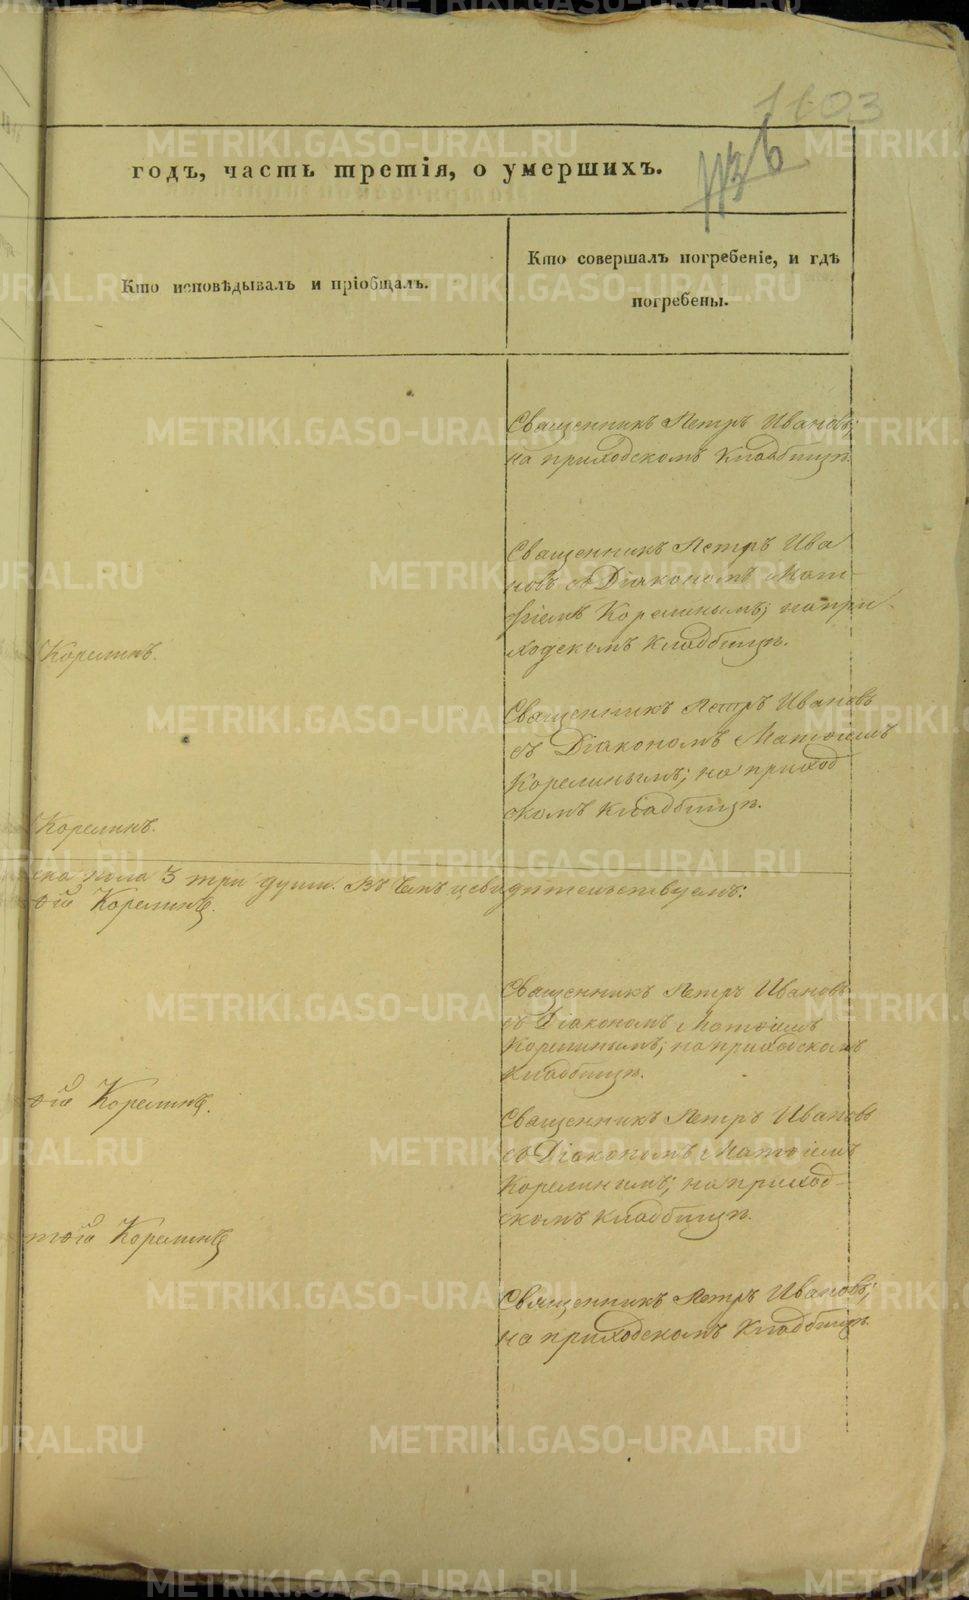 1103
годъ, часть третія, о умершихъ.
Кто исповѣдывалъ и пріобщалъ.
Кто совершалъ погребеніе, и гдѣ
погребены.
Священникъ Петръ Ивановъ;
на приходскомъ Кладбищѣ.
Священникъ Петръ Ива
новъ съ Діакономъ Мат-
ѳіемъ Корелинымъ; на при-
ходскомъ Кладбищѣ.
Корелинъ.
Священникъ Петръ Ивановъ
съ Діакономъ Матѳіемъ
Корелинымъ; на приход
скомъ Кладбищѣ.
Корелинъ.
ска пола 3 три души. Въ чемъ и свидѣтельствуемъ:
ѳій Корелинъ.
Священникъ Петръ Ивановъ
съ Діакономъ Матѳіемъ
Корелинымъ; на приходскомъ
Кладбищѣ.
ѳій Корелинъ.
Священникъ Петръ Ивановъ
съ Діакономъ Матѳіемъ
Корелинымъ; на приход-
скомъ Кладбищѣ.
тѳій Корелинъ
Священникъ Петръ Ивановъ;
на приходскомъ Кладбищѣ.
METRIKI.GASO-URAL.RU